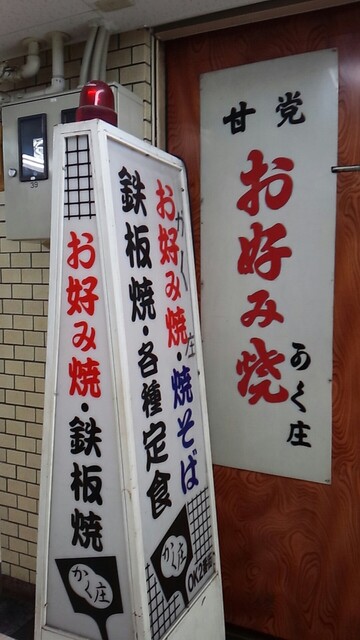 甘党
お好み焼
かく庄
お好み焼・焼そば
鉄板焼・各種定食
かく庄
お好み焼・鉄板焼
かく庄
39